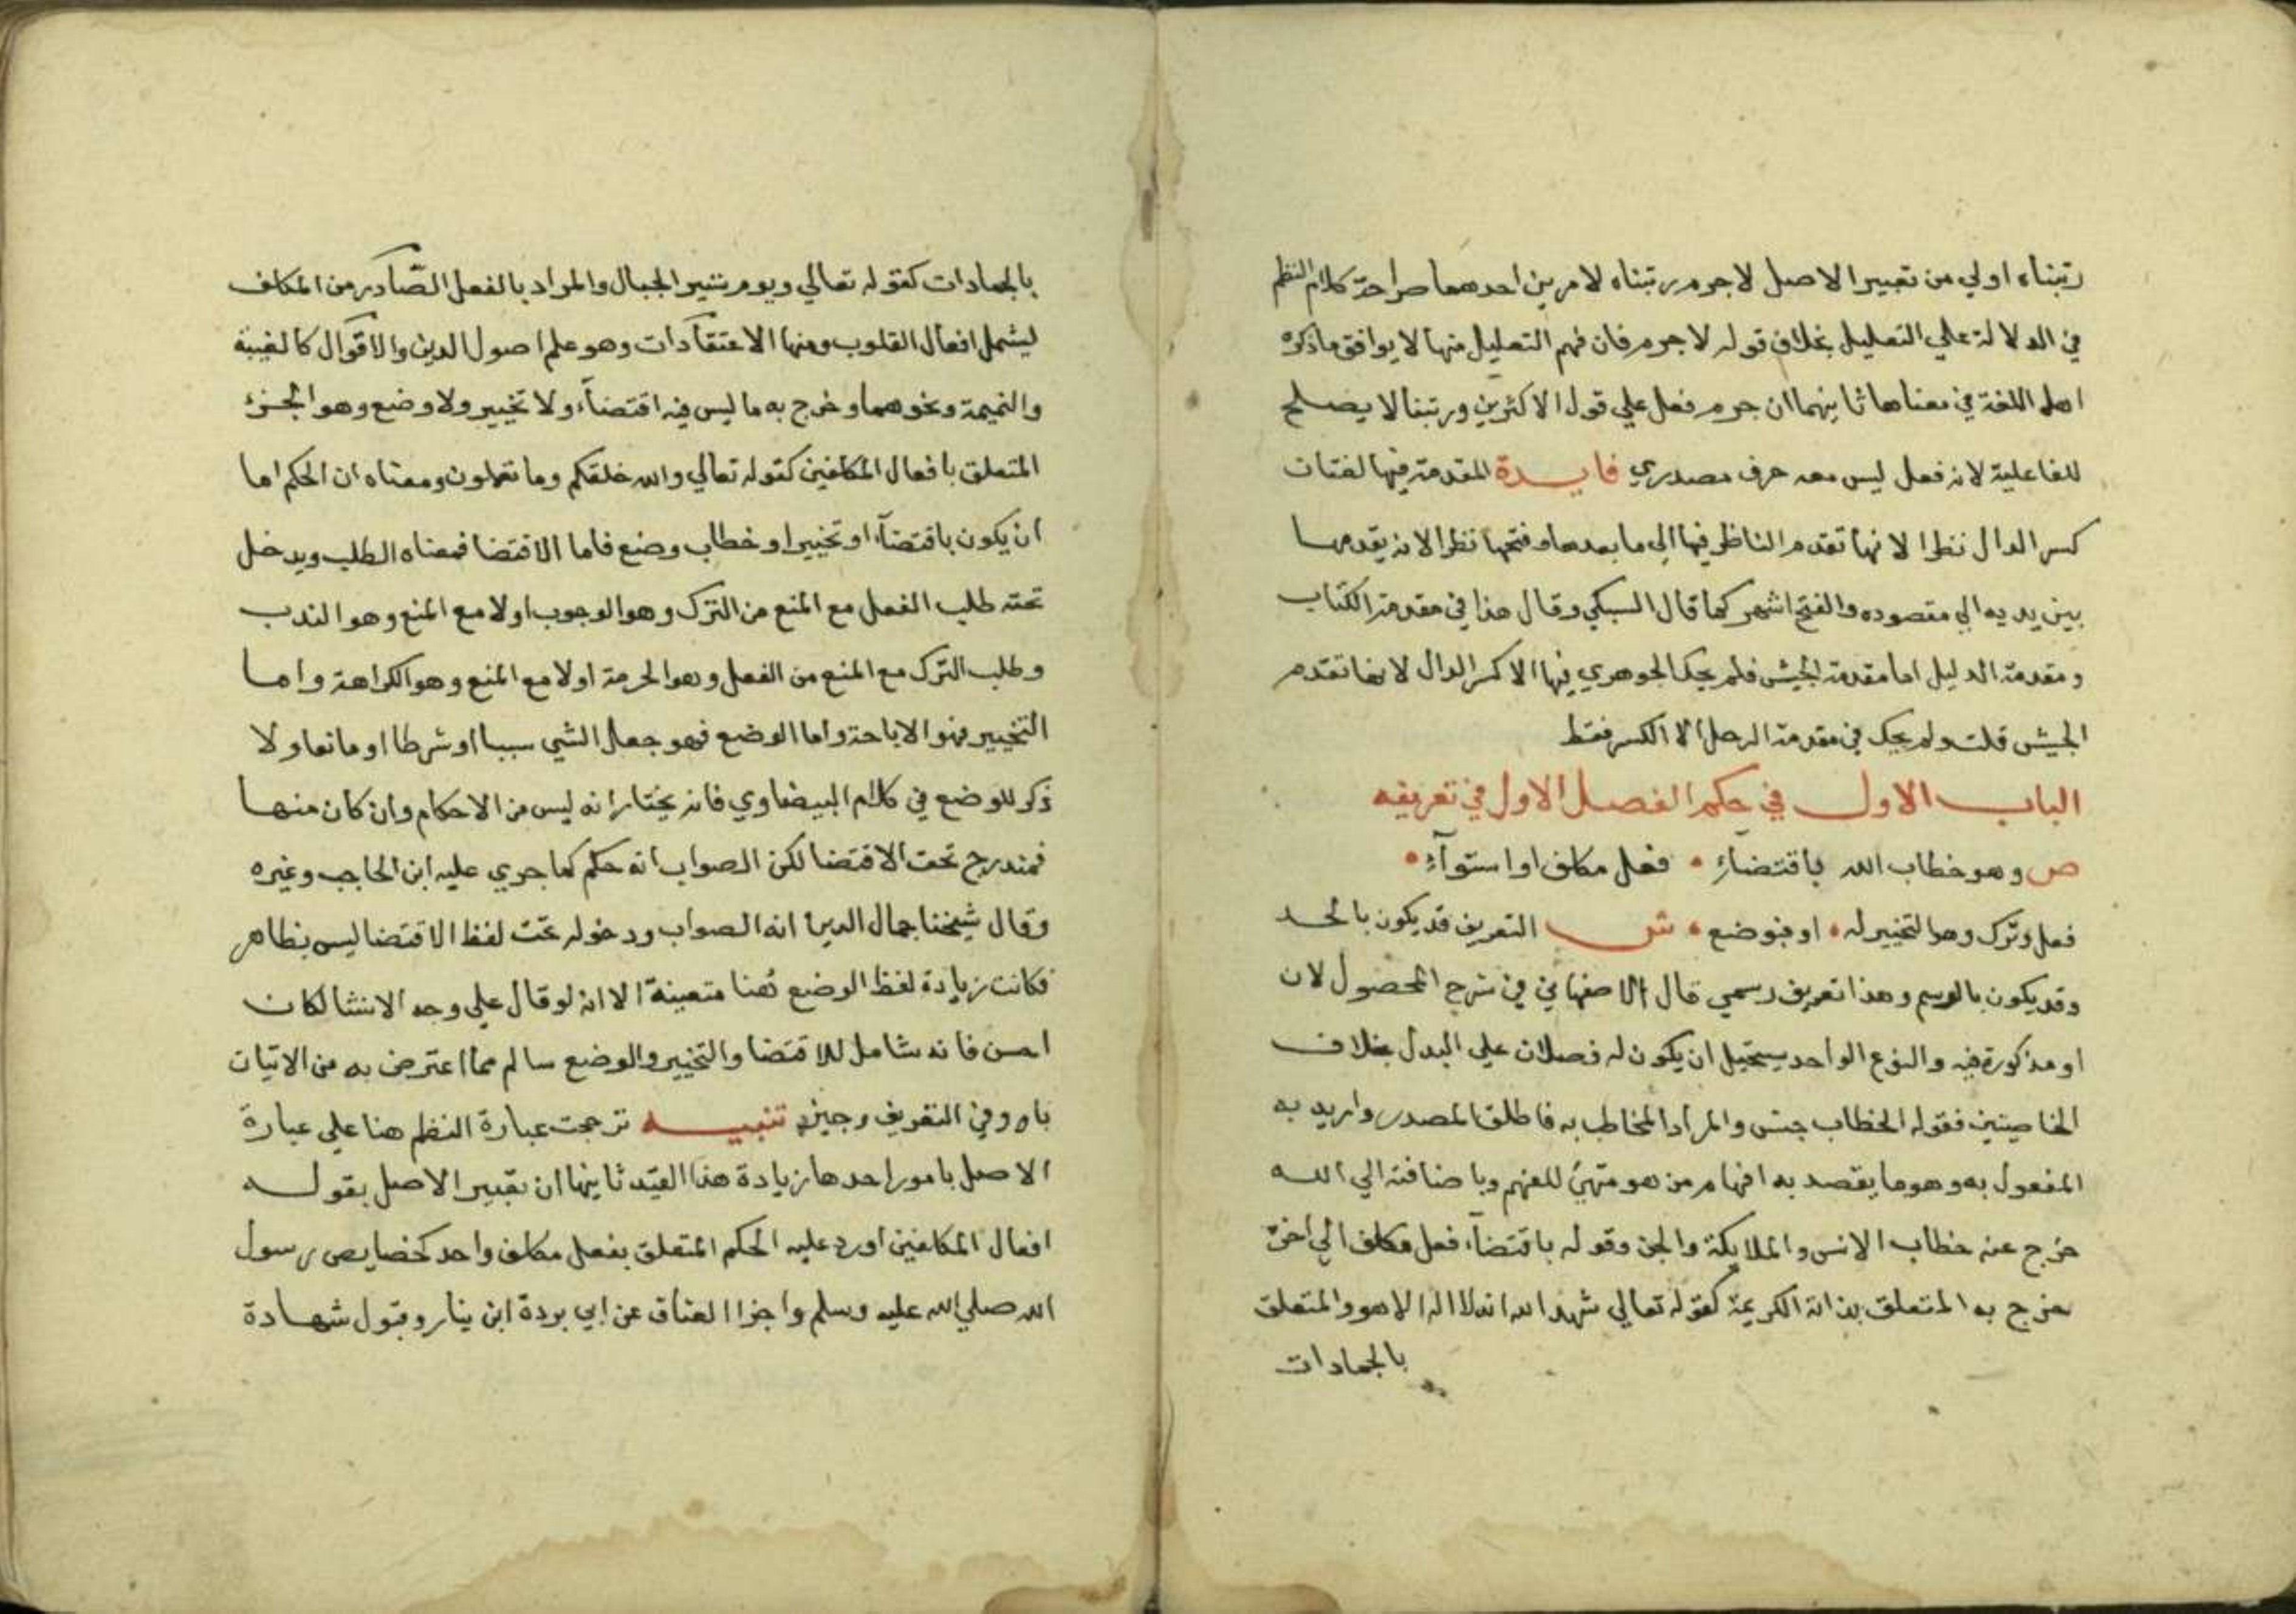 رتبناه اولي من تعبير الاصل لاجرم رتبناه لامرين احدهما صراحة كلام النظم
في الدلالة علي التعليل بخلاف قوله لاجرم فان فهم التعليل منها لا يوافق ماذكره
اهل اللغة في معناها ثانيهما ان جرم فعل علي قول الاكثرين ورتبنا لا يصلح
للفاعلية لانه فعل ليس معه حرف مصدري فايدة المقدمة فيها لغتان
كسر الدال نظرا لانها تقدم الناظر فيها الي ما بعدها وفتحها نظرا لانه يقدمها
بين يديه الي مقصوده والفتح اشهر كما قال السبكي وقال هذا في مقدمة الكتاب
ومقدمة الدليل اما مقدمة الجيش فلم يحك الجوهري فيها الا كسر الدال لانها تقدم
الجيش قلت ولم يحك في مقدمة الرحل الا الكسر فقط
الباب الاول في حكم الفصل الاول في تعريفه
ص وهو خطاب الله باقتضاء • فعل مكلف او استواء •
فعل وترك وهو التخيير له • او فبوضع • ش التعريف قد يكون بالحد
وقد يكون بالرسم وهذا تعريف رسمي قال الاصفهاني في شرح المحصول لان
او مذكورة فيه والنوع الواحد يستحيل ان يكون له فصلان علي البدل بخلاف
الخاصيتين فقوله الخطاب جنس والمراد المخاطب به فاطلق المصدر واريد به
المفعول به وهو ما يقصد به افهام من هو متهيئ للفهم وباضافته الي الله
خرج عنه خطاب الانس والملايكة والجن وقوله باقتضاء فعل مكلف الي اخره
خرج به المتعلق بذاته الكريمة كقوله تعالي شهد الله انه لا اله الا هو والمتعلق
بالجمادات
بالجمادات كقوله تعالي ويوم نسير الجبال والمراد بالفعل الصادر من المكلف
ليشمل افعال القلوب ومنها الاعتقادات وهو علم اصول الدين والاقوال كالغيبة
والنميمة ونحوهما وخرج به ما ليس فيه اقتضاء ولا تخيير ولا وضع وهو الجزء
المتعلق بافعال المكلفين كقوله تعالي والله خلقكم وما تعملون ومعناه ان الحكم اما
ان يكون باقتضاء او تخيير او خطاب وضع فاما الاقتضا فمعناه الطلب ويدخل
تحته طلب الفعل مع المنع من الترك وهو الوجوب اولا مع المنع وهو الندب
وطلب الترك مع المنع من الفعل وهو الحرمة اولا مع المنع وهو الكراهة واما
التخيير فهو الاباحة واما الوضع فهو جعل الشي سببا او شرطا او مانعا ولا
ذكر للوضع في كلام البيضاوي فانه يختار انه ليس من الاحكام وان كان منها
فمندرج تحت الاقتضا لكن الصواب انه حكم كما جري عليه ابن الحاجب وغيره
وقال شيخنا جمال الدين انه الصواب ودخوله تحت لفظ الاقتضا ليس بظاهر
فكانت زيادة لفظ الوضع هنا متعينة الا انه لو قال علي وجه الانشا لكان
احسن فانه شامل للاقتضا والتخيير والوضع سالم مما اعترض به من الاتيان
باو وفي التعريف وجيزه تنبيه ترجحت عبارة النظم هنا علي عبارة
الاصل بامور احدها زيادة هذا القيد ثانيها ان تعبير الاصل بقوله
افعال المكلفين اورد عليه الحكم المتعلق بفعل مكلف واحد كخصايص رسول
الله صلي الله عليه وسلم واجزا العناق عن ابي بردة ابن ينار وقبول شهادة